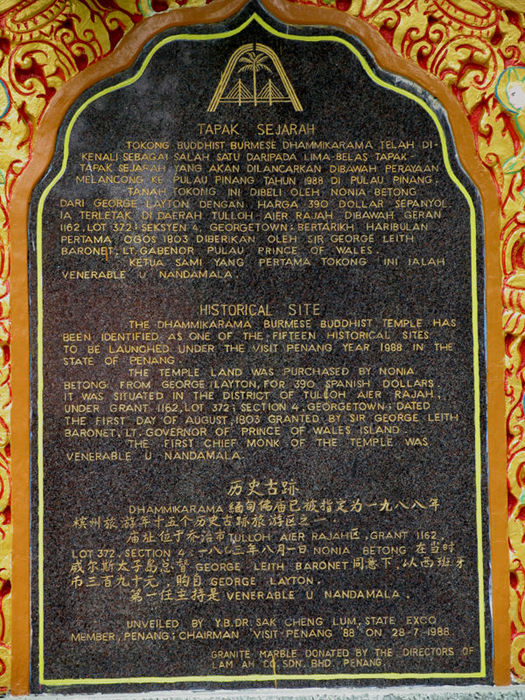 TAPAK SEJARAH
TOKONG BUDDHIST BURMESE DHAMMIKARAMA TELAH DI-
KENALI SEBAGAI SALAH SATU DARIPADA LIMA-BELAS TAPAK-
TAPAK SEJARAH YANG AKAN DILANCARKAN DIBAWAH PERAYAAN
MELANCONG KE PULAU PINANG TAHUN 1988 DI PULAU PINANG.
TANAH TOKONG INI DIBELI OLEH NONIA BETONG
DARI GEORGE LAYTON DENGAN HARGA 390 DOLLAR SEPANYOL.
IA TERLETAK DI DAERAH TULLOH AIER RAJAH DIBAWAH GERAN
1162, LOT 372; SEKSYEN 4, GEORGETOWN; BERTARIKH HARIBULAN
PERTAMA OGOS 1803 DIBERIKAN OLEH SIR GEORGE LEITH
BARONET, LT. GABENOR PULAU PRINCE OF WALES.
KETUA SAMI YANG PERTAMA TOKONG INI IALAH
VENERABLE U NANDAMALA.
HISTORICAL SITE
THE DHAMMIKARAMA BURMESE BUDDHIST TEMPLE HAS
BEEN IDENTIFIED AS ONE OF THE FIFTEEN HISTORICAL SITES
TO BE LAUNCHED UNDER THE VISIT PENANG YEAR 1988 IN THE
STATE OF PENANG.
THE TEMPLE LAND WAS PURCHASED BY NONIA
BETONG FROM GEORGE LAYTON, FOR 390 SPANISH DOLLARS.
IT WAS SITUATED IN THE DISTRICT OF TULLOH AIER RAJAH,
UNDER GRANT 1162, LOT 372; SECTION 4, GEORGETOWN; DATED
THE FIRST DAY OF AUGUST, 1803 GRANTED BY SIR GEORGE LEITH
BARONET, LT. GOVERNOR OF PRINCE OF WALES ISLAND.
THE FIRST CHIEF MONK OF THE TEMPLE WAS
VENERABLE U NANDAMALA.
历史古跡
DHAMMIKARAMA 缅甸佛庙已被指定为一九八八年
槟州旅游年十五个历史古跡旅游区之一.
庙址位于乔治市 TULLOH AIER RAJAH区, GRANT 1162,
LOT 372, SECTION 4. 一八〇三年八月一日 NONIA BETONG 在当时
威尔斯太子岛总督 GEORGE LEITH BARONET 同意下, 以西班牙
币三百九十元, 购自 GEORGE LAYTON.
第一任主持是 VENERABLE U NANDAMALA.
UNVEILED BY Y.B. DR. SAK CHENG LUM, STATE EXCO
MEMBER, PENANG; CHAIRMAN 'VISIT PENANG '88' ON 28-7-1988.
GRANITE MARBLE DONATED BY THE DIRECTORS OF
LAM AH CO. SDN. BHD. PENANG.